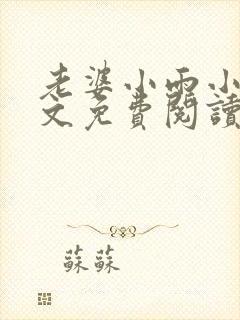 老婆小雨小
文免費閱讀
蘇蘇